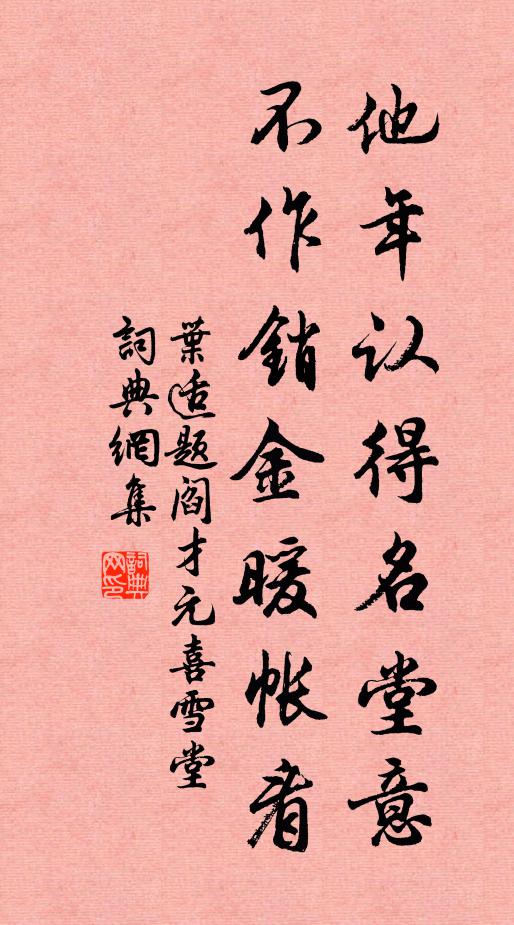 他年认得名堂意
不作銷金暖帐看
葉适题阎才元喜雪堂
詞典網集
詞典网印